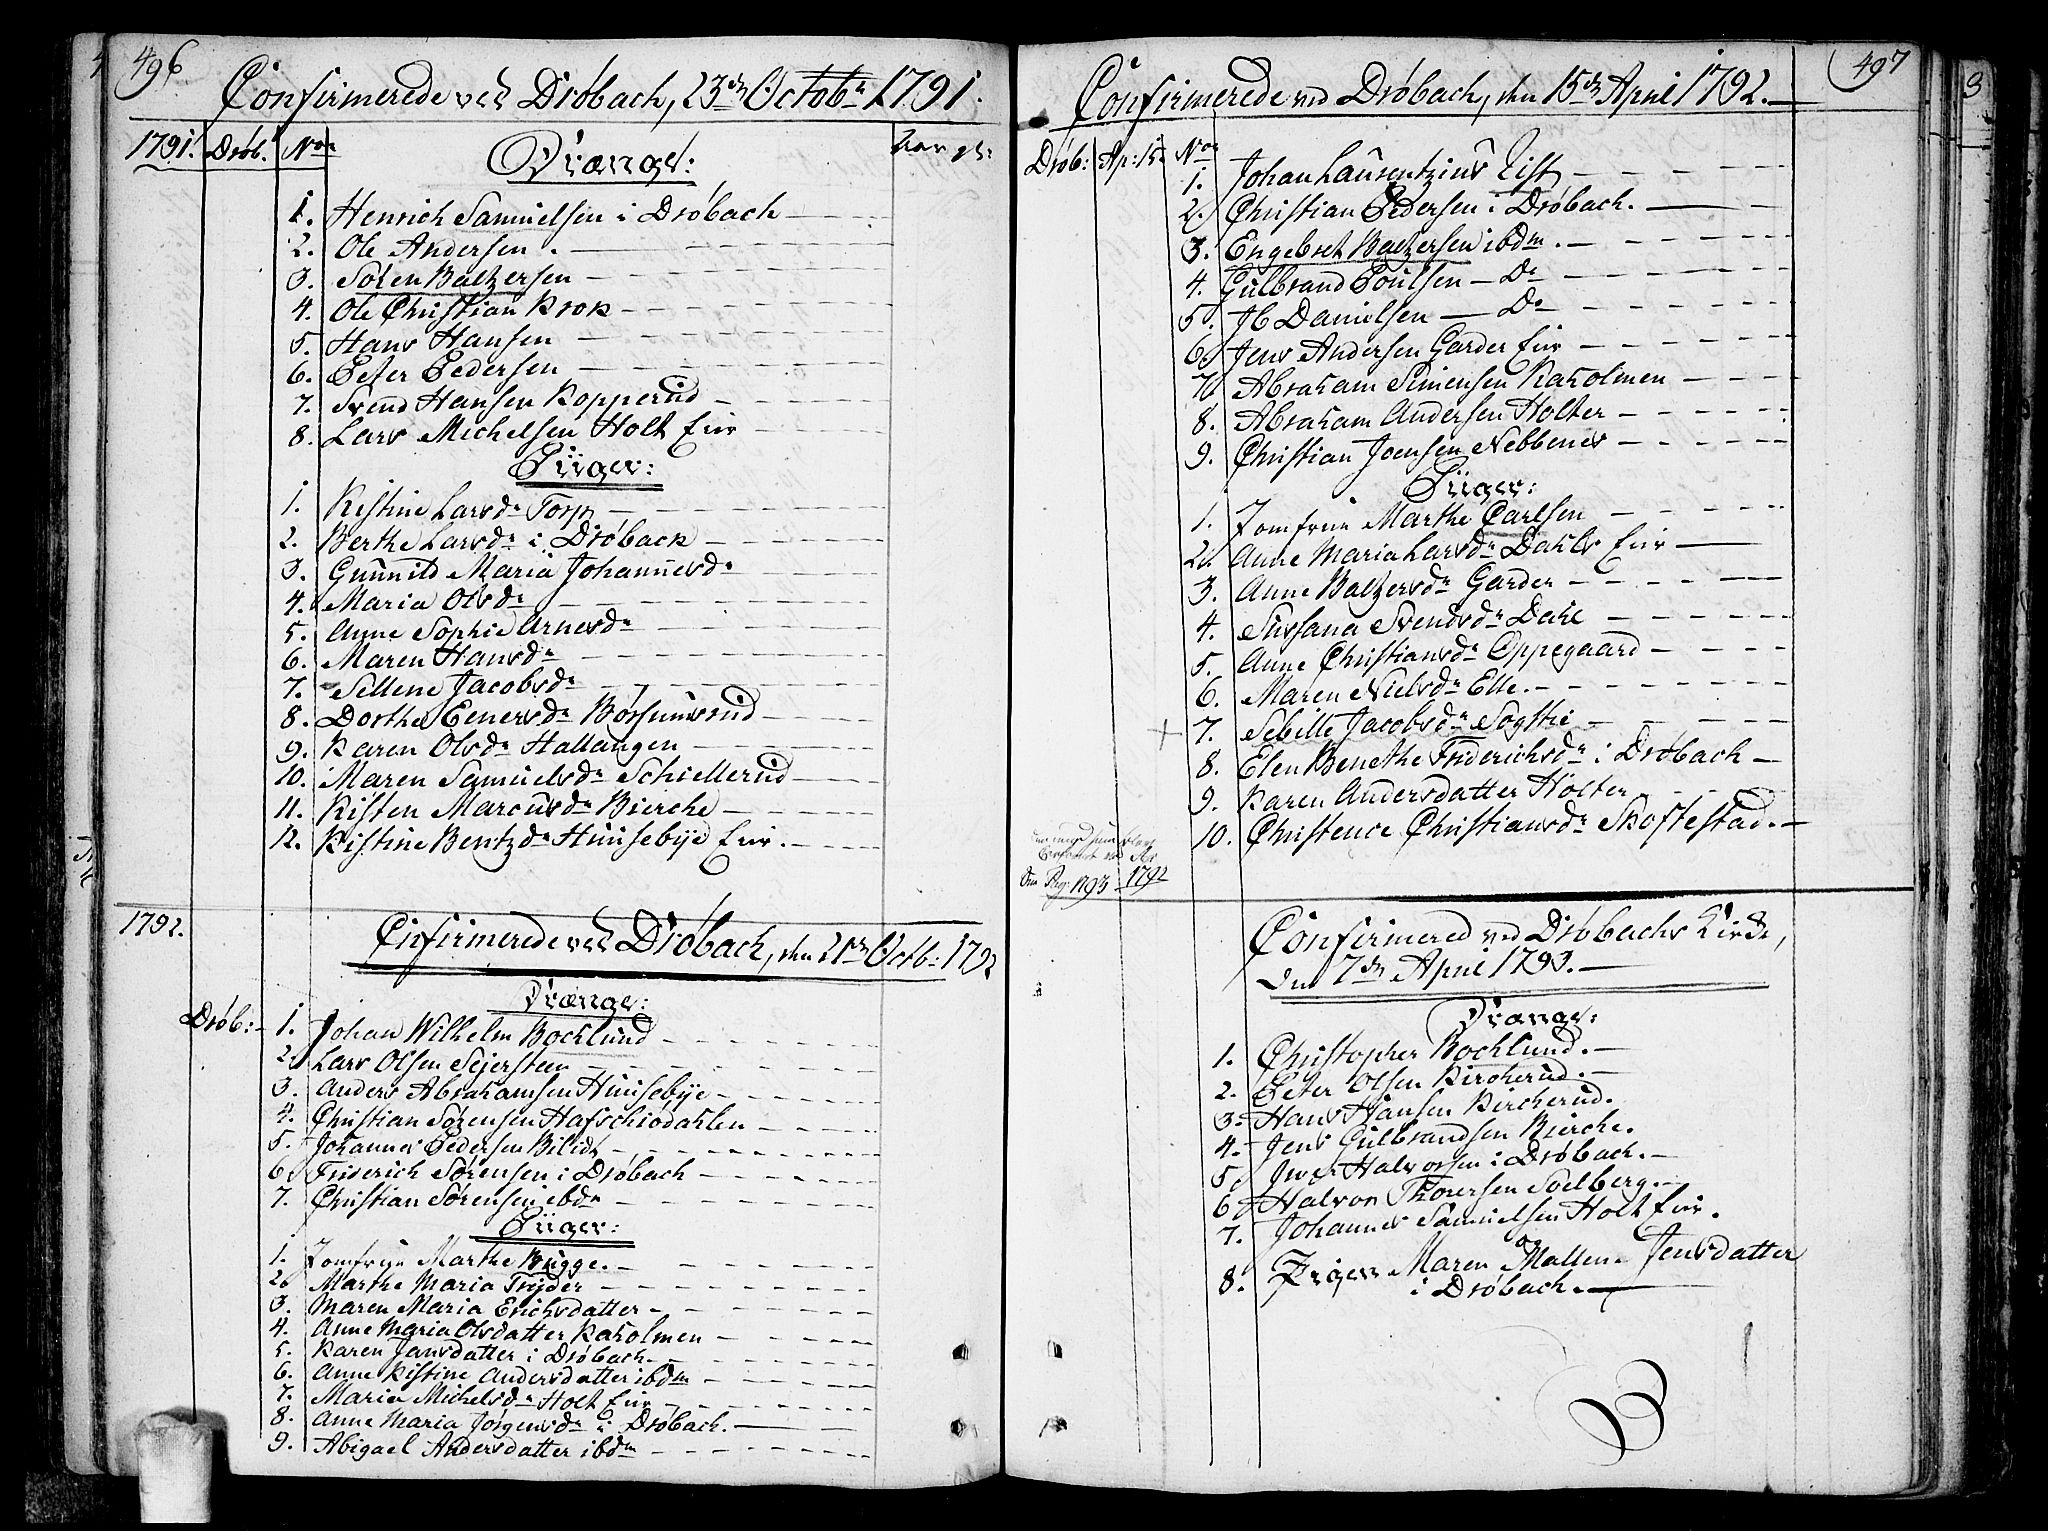 496
Confirmerede ved Drøbach, 23de Octobr 1791.
1791. Drøb. No
Drænge:
1. Henrich Samuelsen i Drøbach
2. Ole Andersen
3. Søren Baltzersen
4. Ole Christian Krok
5. Hans Hansen
6. Peter Pedersen
7. Svend Hansen Kopperud
8. Lars Michelsen Holt Eier
Piiger:
1. Kistine Larsdr Torp
2. Berthe Larsdr i Drøback
3. Gunnild Maria Johannesdr
4. Maria Olsdr
5. Anne Sophie Arnesdr
6. Maren Hansdr
7. Sellene Jacobsdr
8. Dorthe Eenersdr Børsumsrud
9. Karen Olsdr Hallangen
10. Maren Samuelsdr Schiellerud
11. Kisten Marcusdr Bierche
12. Kistine Bentzdr Huusebye Eier.
1792.
Confirmerede ved Drøbach, den 21de Octb: 1792
Drænge:
Drøb: 1. Johan Wilhelm Bocklund
2. Lars Olsen Sejersteen
3. Anders Abrahamsen Huusebye
4. Christian Sørensen Hafschiødahlen
5. Johannes Pedersen Bilidt
6. Friderich Sørensen i Drøbach
7. Christian Sørensen ibdm
Piiger:
1. Jomfrue Marthe Bugge.
2. Marthe Maria Tryder
3. Maren Maria Erichsdatter
4. Anne Maria Olsdatter Kaholmen
5. Karen Jansdatter i Drøbach
6. Anne Kistine Andersdatter ibdm
7. Maria Michelsdr Holt Eier
8. Anne Maria Jørgensdr i Drøbach.
9. Abigael Andersdatter ibdm
497
Confirmerede ved Drøbach, den 15de April 1792.
Drøb: Ap: 15 No
1. Johan Laurentzius List
2. Christian Pedersen i Drøbach.
3. Engebret Baltzersen ibdm.
4. Gulbrand Poulsen - Do
5. Ib Danielsen - Do
6. Jens Andersen Garder Eier
7. Abraham Simensen Kaholmen
8. Abraham Andersen Holter
9. Christian Joensen Nebbenes
Piiger:
1. Jomfrue Marthe Carlsen
2. Anne Maria Larsdr Dahls Eier
3. Anne Baltzersdr Garder
4. Susana Svendsdr Dahl
5. Anne Christiansdr Oppegaard
6. Maren Nielsdr Elle.
7. Sebille Jacobsdr Sogstie
8. Elen Benethe Friderichsdr i Drøbach
9. Karen Andersdatter Holter
10. Christence Christiansdr Skoftestad.
1793 1792
Confirmered ved Drøbachs Kirke,
den 7de April 1793.
Drænge:
1. Christopher Bocklund.
2. Peter Olsen Kircherud.
3. Hans Hansen Kircherud.
4. Jens Gulbrandsen Bierche.
5. Iver Halvorsen i Drøbach.
6. Halvor Thoresen Solberg.
7. Johannes Samuelsen Holt Eier.
8. Piger Maren Mallene Jensdatter
i Drøbach.